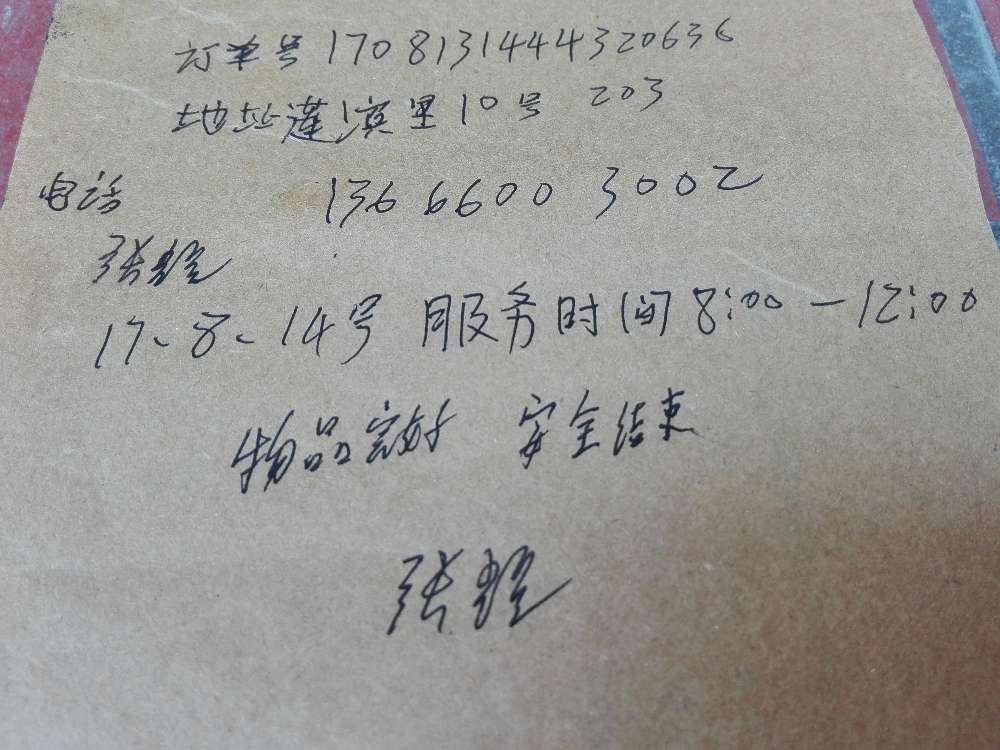 订单号 1708131444320636
地址莲滨里10号 203
电话 136 6600 3002
张
17、8、14号 服务时间 8:00-12:00
物品完好 安全结束
张